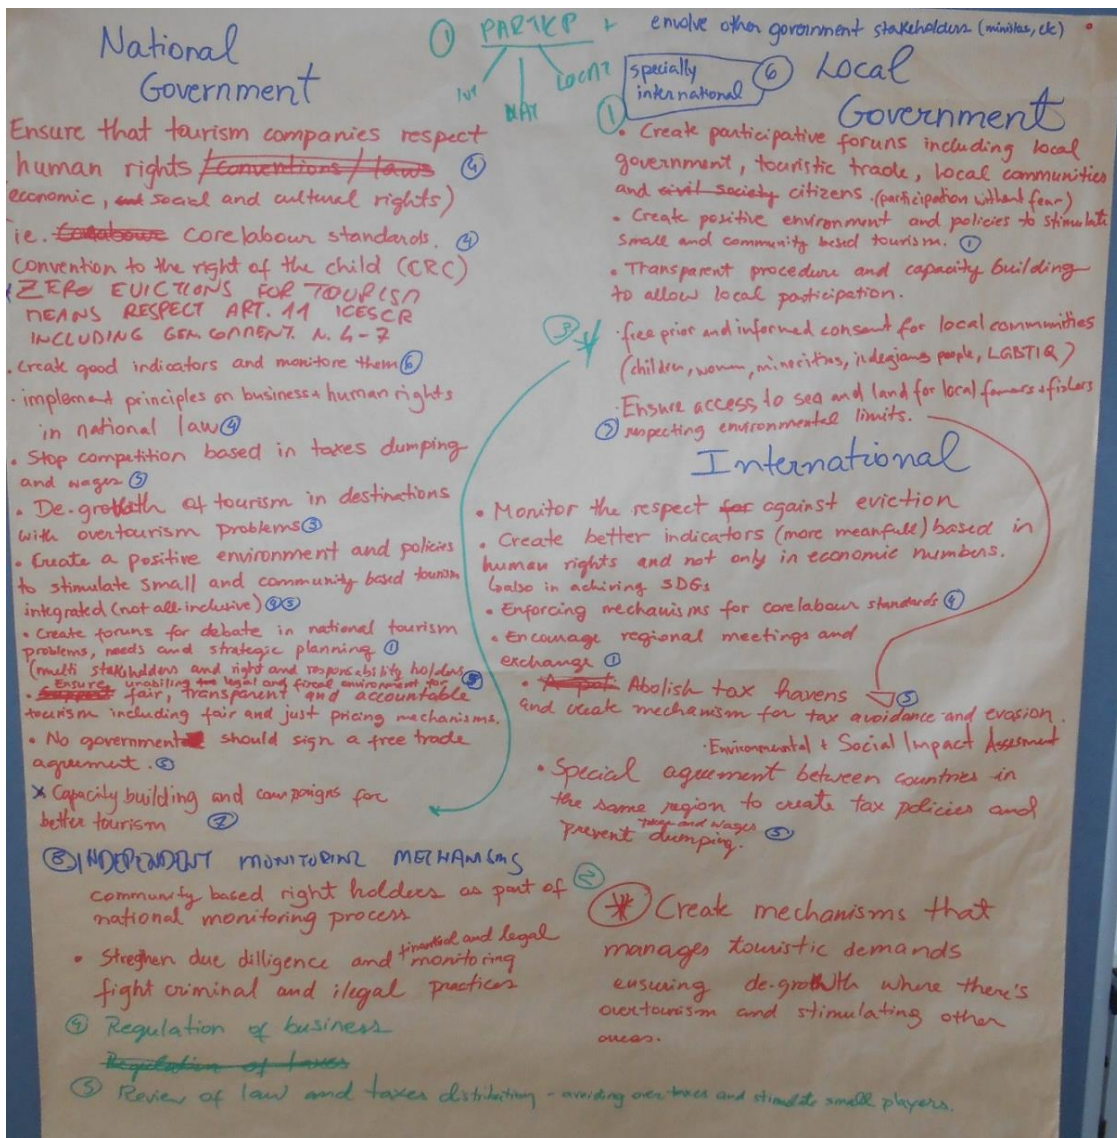 ① PARTICP + envolve other government stakeholders (ministas, etc)
INT NAT LOCAL
specially
international
National
Government
Ensure that tourism companies respect
human rights /conventions/laws ④
(economic, and social and cultural rights)
ie. corelabour standards. ④
Convention to the right of the child (CRC)
ZERO EVICTIONS FOR TOURISM
MEANS RESPECT ART. 11 ICESCR
INCLUDING GEN. COMMENT. N. 4-7
• Create good indicators and monitore them ⑥
• implement principles on business + human rights
in national law ④
• Stop competition based in taxes dumping
and wages ⑤
• De-growth of tourism in destinations
with overtourism problems ③
• Create a positive environment and policies
to stimulate small and community based tourism
integrated (not all-inclusive)
• Create foruns for debate in national tourism
problems, needs and strategic planning ①
(multi stakeholders and right and responsibility holders
Ensure legal and fiscal environment for
• fair, transparent and accountable
tourism including fair and just pricing mechanisms.
• No government should sign a free trade
agreement. ⑤
x Capacity building and campaigns for
better tourism ⑦
⑧ INDEPENDENT MONITORING MECHANISMS
community based right holders as part of
national monitoring process
• Streghen due dilligence and financial and legal monitoring
fight criminal and ilegal practices
④ Regulation of business
Regulation of taxes
⑤ Review of law and taxes distribution - avoiding over taxes and stimulate small players.
⑥ Local
Government
①
• Create participative foruns including local
government, touristic trade, local communities
and civil society citizens. (participation without fear)
• Create positive environment and policies to stimulate
small and community based tourism. ①
• Transparent procedure and capacity building
to allow local participation.
③ * • free prior and informed consent for local communities
(children, women, minorities, indegians people, LGBTIQ)
• Ensure access to sea and land for local famers + fishers
respecting environmental limits.
International
• Monitor the respect for against eviction
• Create better indicators (more meanfull) based in
human rights and not only in economic numbers.
also in achiring SDGs
• Enforcing mechanisms for corelabour standards ④
• Encourage regional meetings and
exchange ①
• Abolish tax havens ⑤
and creak mechanism for tax avoidance and evasion.
• Environmental + Social Impact Assesment
• Special agreement between countries in
the same region to create tax policies and
prevent taxes and wages dumping. ⑤
② * Create mechanisms that
manages touristic demands
ensuring de-growth where there's
overtourism and stimulating other
areas.